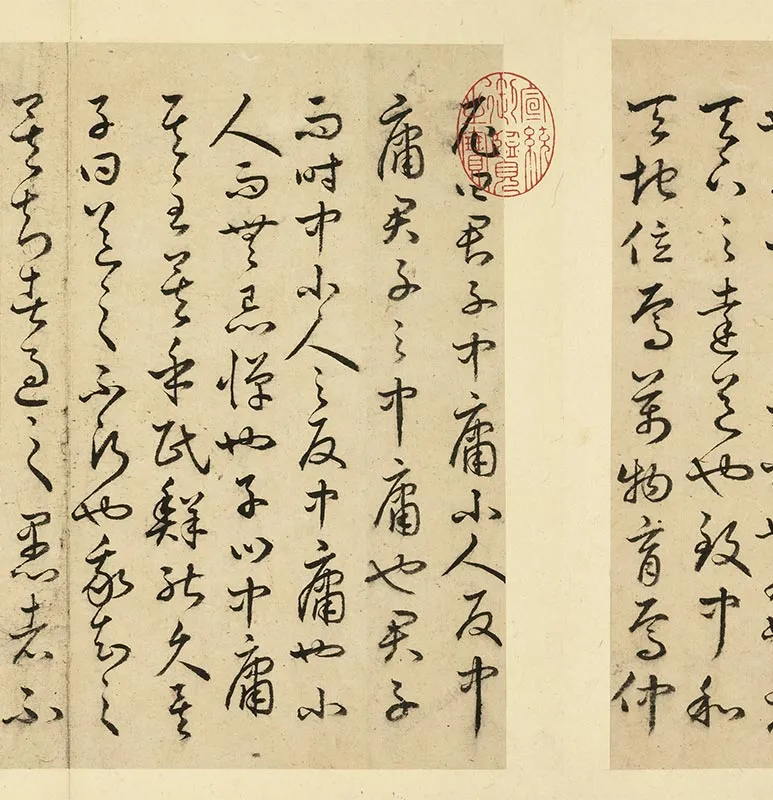 天下之達道也致中和
天地位焉萬物育焉仲
尼曰君子中庸小人反中
庸君子之中庸也君子
而時中小人之反中庸也小
人而無忌憚也子曰中庸
其至矣乎民鮮能久矣
子曰道之不行也我知之
矣知者過之愚者不
宣統
御覽
之寶